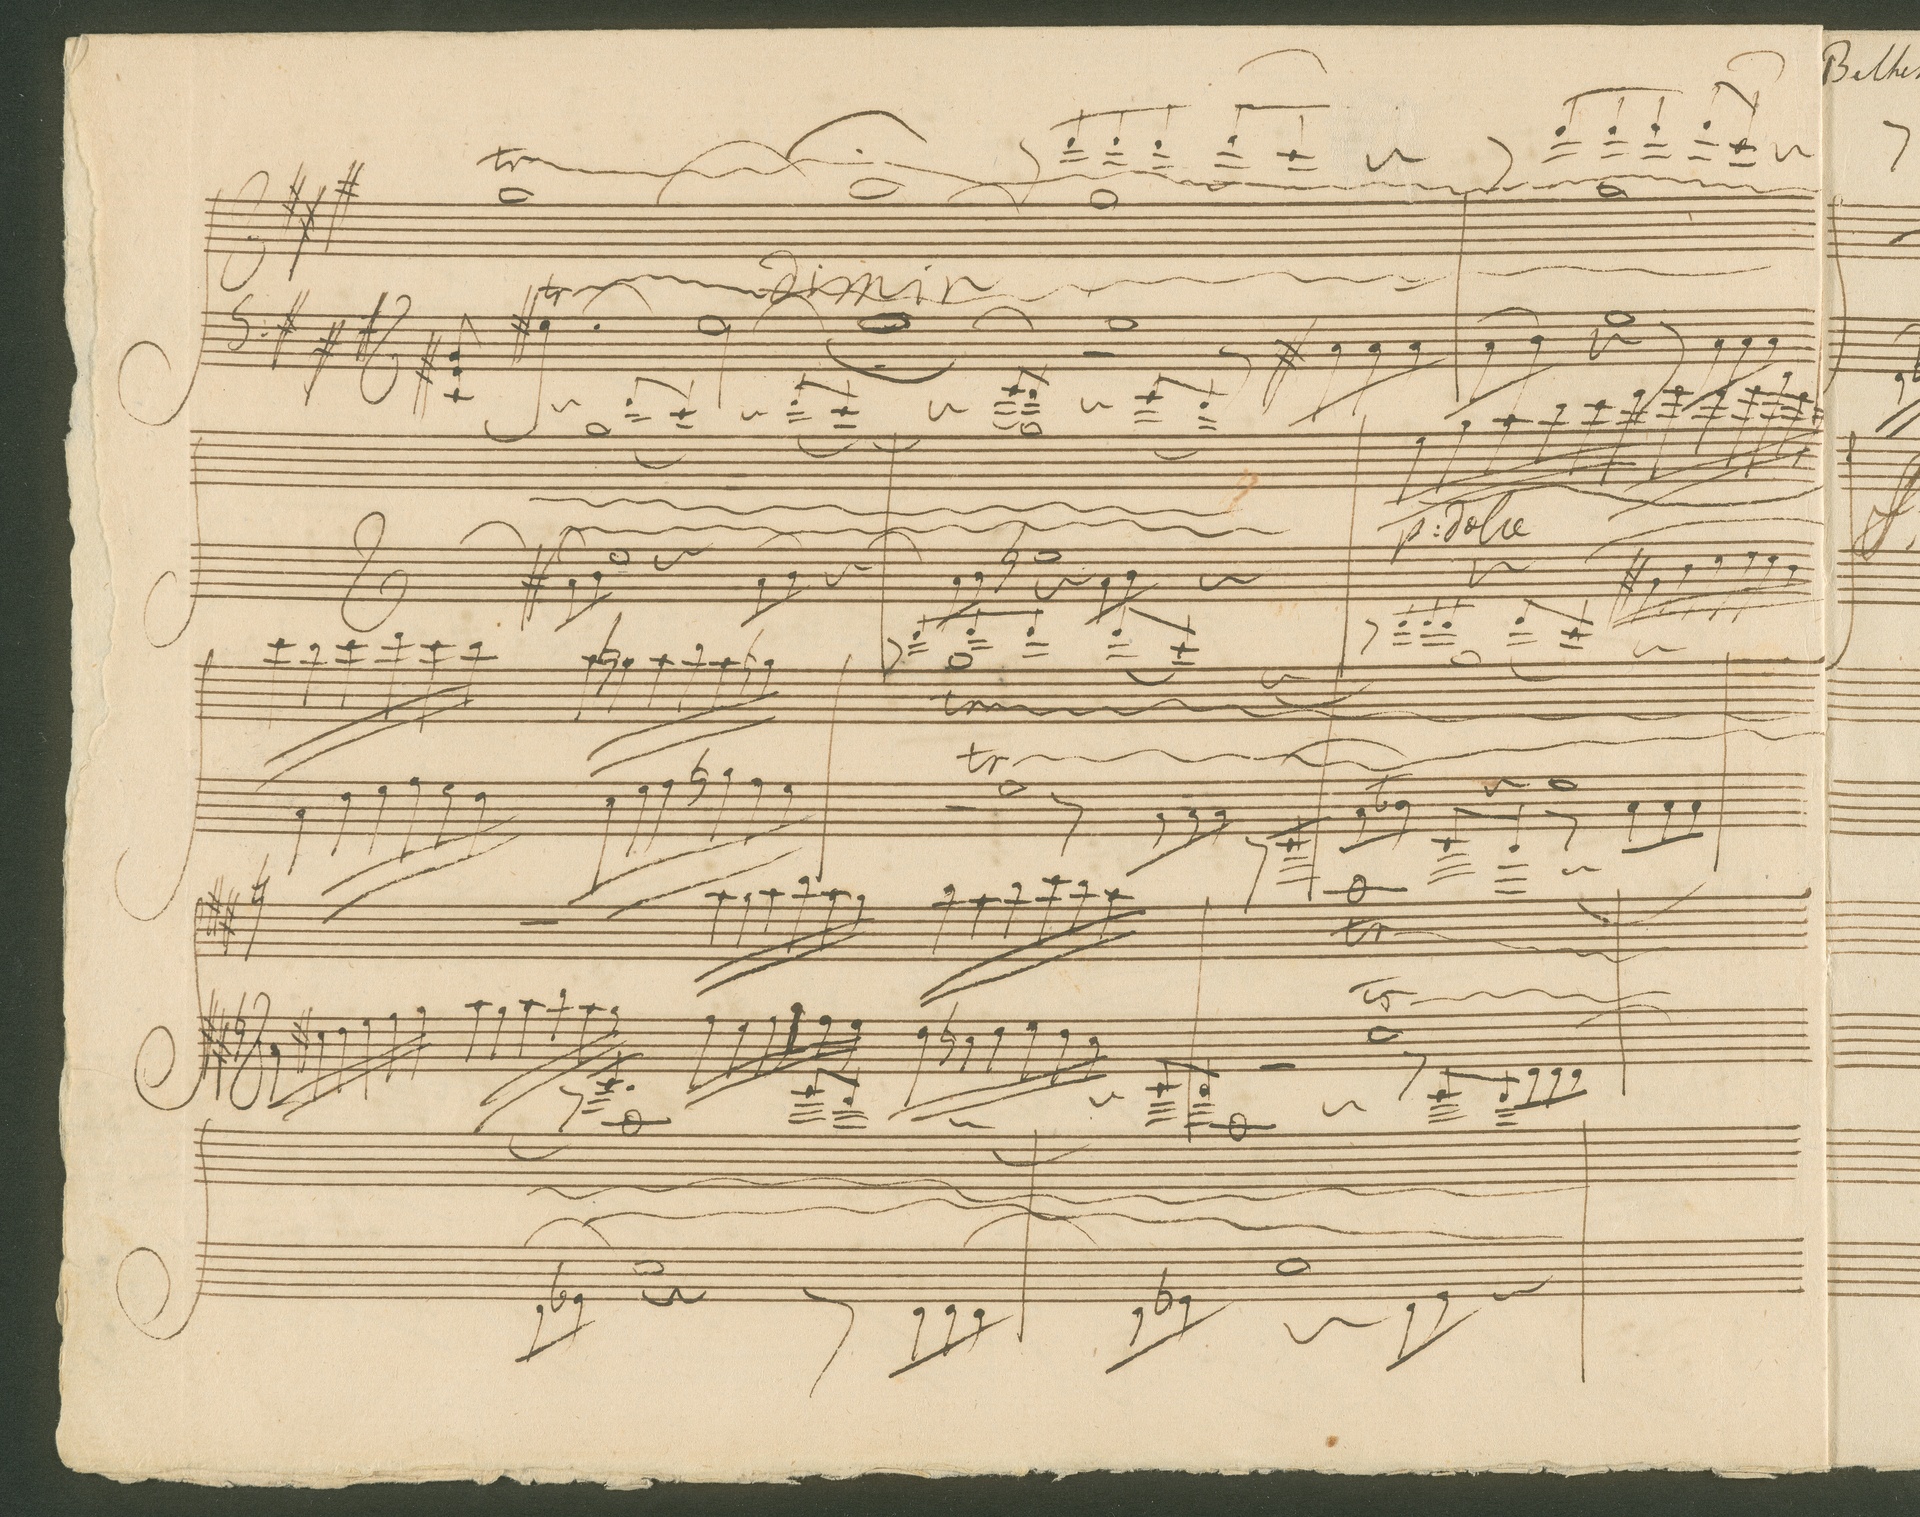 tr
tr
dimin
p: dolce
tr
tr
tr
tr